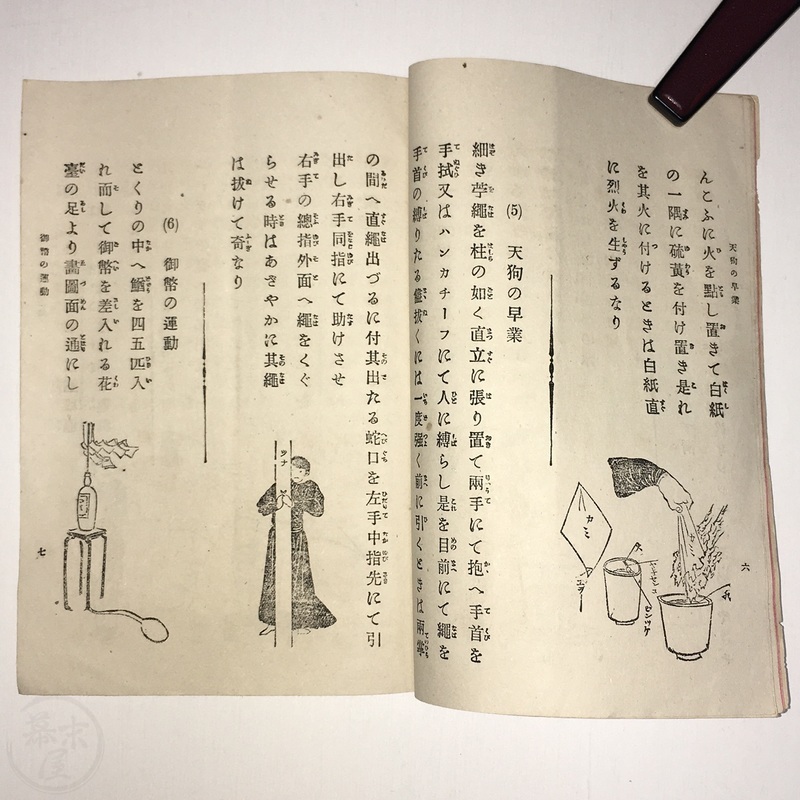 天狗の早業
んこふに火を點し置きて白紙
の一隅に硫黃を付け置き是れ
を其火に付けるときは白紙直
に烈火を生ずるなり
カミ
エヲー
火
ヒ
六
(5) 天狗の早業
細き苧繩を柱の如く直立に張り置て兩手にて抱へ手首を
手拭又はハンカチーフにて人に縛らし是を目前にて繩を
手首の縛りたる儘拔くには一度强く前に引くときは兩掌
の間へ直繩出づるに付其出たる蛇口を左手中指先にて引
出し右手同指にて助けさせ
右手の總指外面へ繩をくぐ
らせる時はあざやかに其繩
は拔けて奇なり
ツナ
(6) 御幣の運動
とくりの中へ鰌を四五匹入
れ而して御幣を差入れる花
臺の足より畵圖面の通にし
御幣の運動
七
幕末屋